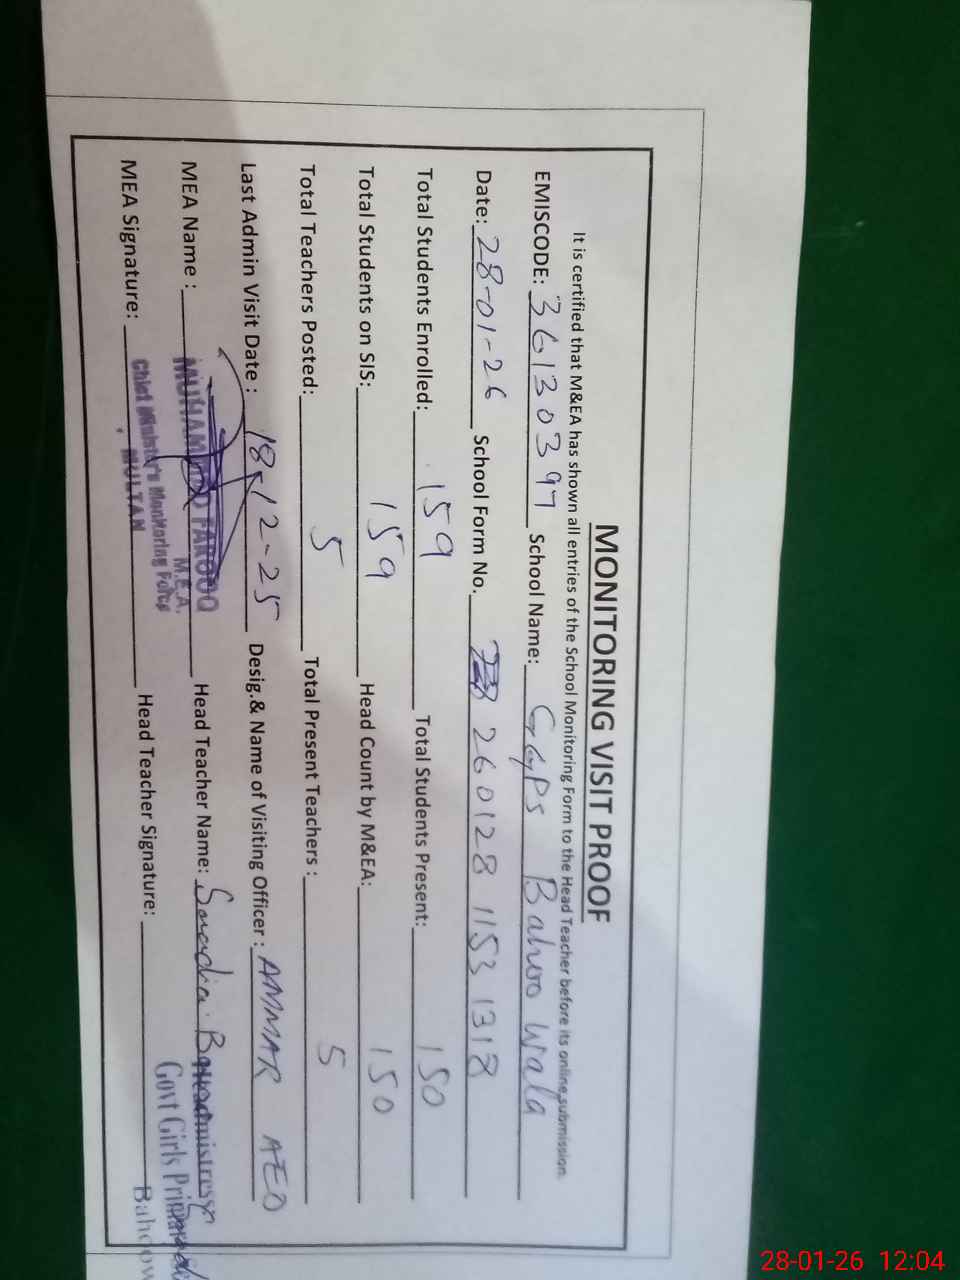 MONITORING VISIT PROOF
It is certified that M&EA has shown all entries of the School Monitoring Form to the Head Teacher before its online submission.
EMISCODE: 36130397 School Name: GGPS Bahoo Wala
Date: 28-01-26 School Form No. 260128 1153 1318
Total Students Enrolled: 159 Total Students Present: 150
Total Students on SIS: 159 Head Count by M&EA: 150
Total Teachers Posted: 5 Total Present Teachers : 5
Last Admin Visit Date : 18-12-25 Desig.& Name of Visiting Officer : AMMAR AEO
MEA Name : MUHAMMAD FAROOQ Head Teacher Name: Headmistress
M.E.A.
Govt Girls Primary
Chief Minister's Monitoring Force
MEA Signature: MULTAN Head Teacher Signature:
28-01-26 12:04